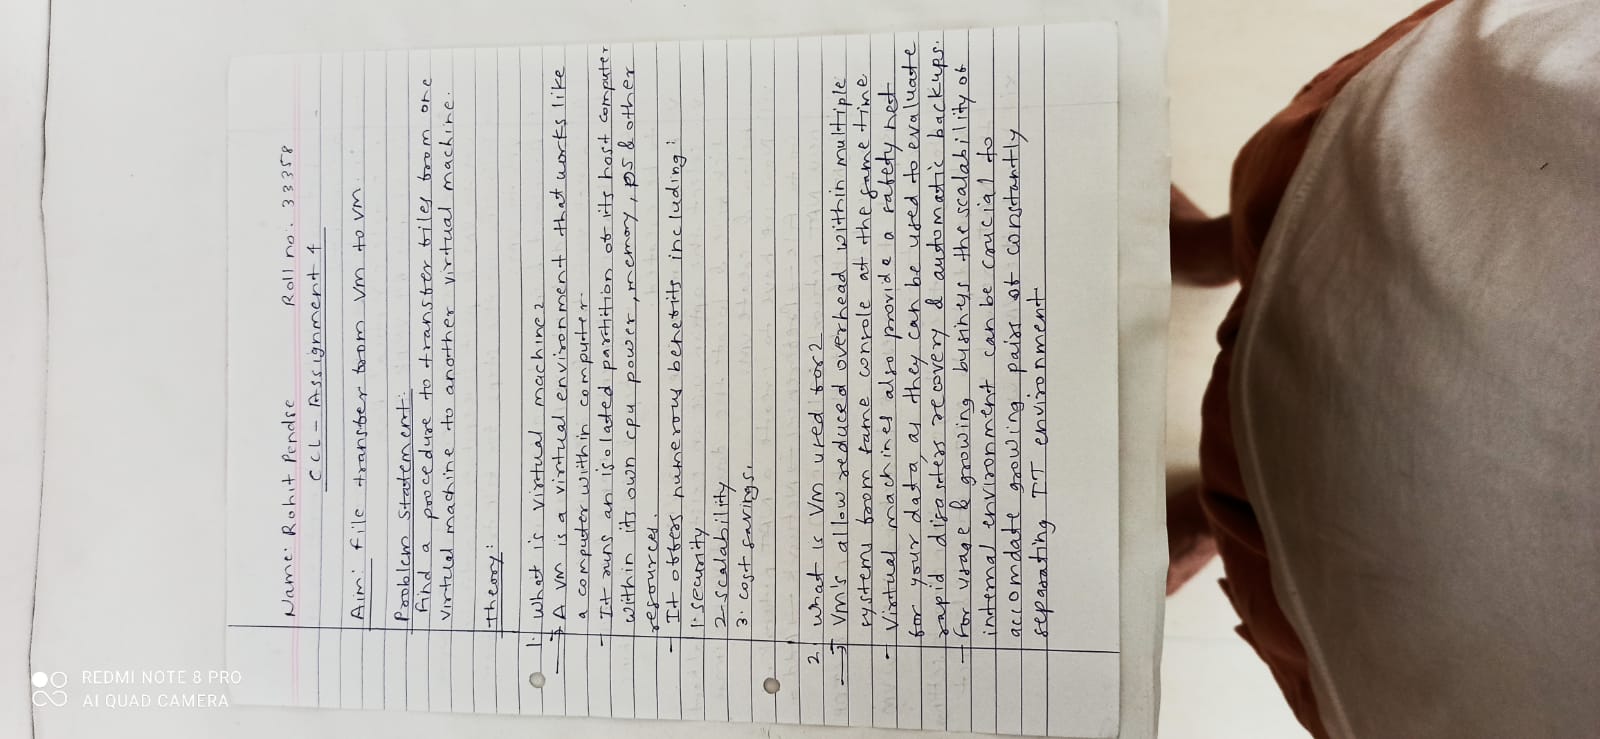 Name: Rohit Pendse Roll no. 33358
CCL - Assignment 4
Aim: File transfer from Vm to Vm.
Problem Statement:
Find a procedure to transfer files from one
virtual machine to another virtual machine.
theory:
1. What is virtual machine?
→ A VM is a virtual environment that works like
a computer within computer.
- It runs an isolated partition of its host computer
within its own cpu power, memory, OS & other
resources.
- It offers numerous benefits including:
1. security
2. scalability
3. cost savings.
2. what is Vm used for?
→ Vm's allow reduced overhead within multiple
systems from same console at the same time
- Virtual machines also provide a safety net
for your data, as they can be used to evaluate
rapid disasters recovery & automatic backups.
- For usage & growing business the scalability of
internal environment can be crucial to
accomdate growing pairs of constantly
separating IT environment
REDMI NOTE 8 PRO
AI QUAD CAMERA